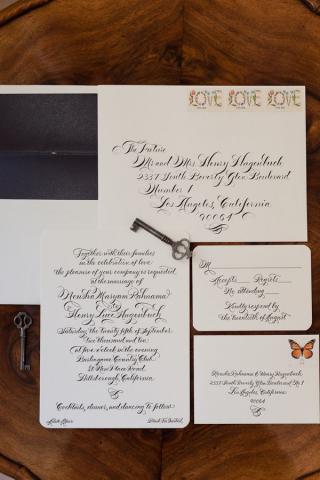 LOVE LOVE LOVE
The Future
Mr. and Mrs. Henry Hagenbuch
2337 South Beverly Glen Boulevard
Number 1
Los Angeles, California
90064
Together with their families
in the celebration of love
the pleasure of your company is requested
at the marriage of
Monika Maryam Rahmana
to
Henry Luce Hagenbuch
Saturday, the twenty fifth of September
two thousand and ten
at five o'clock in the evening
Burlingame Country Club
80 New Place Road
Hillsborough, California
Cocktails, dinner, and dancing to follow
Black Tie Invited
M
Accepts Regrets
No. attending
Kindly respond by
the twentieth of August
Monika Rahmana & Henry Hagenbuch
2337 South Beverly Glen Boulevard No. 1
Los Angeles, California
90064